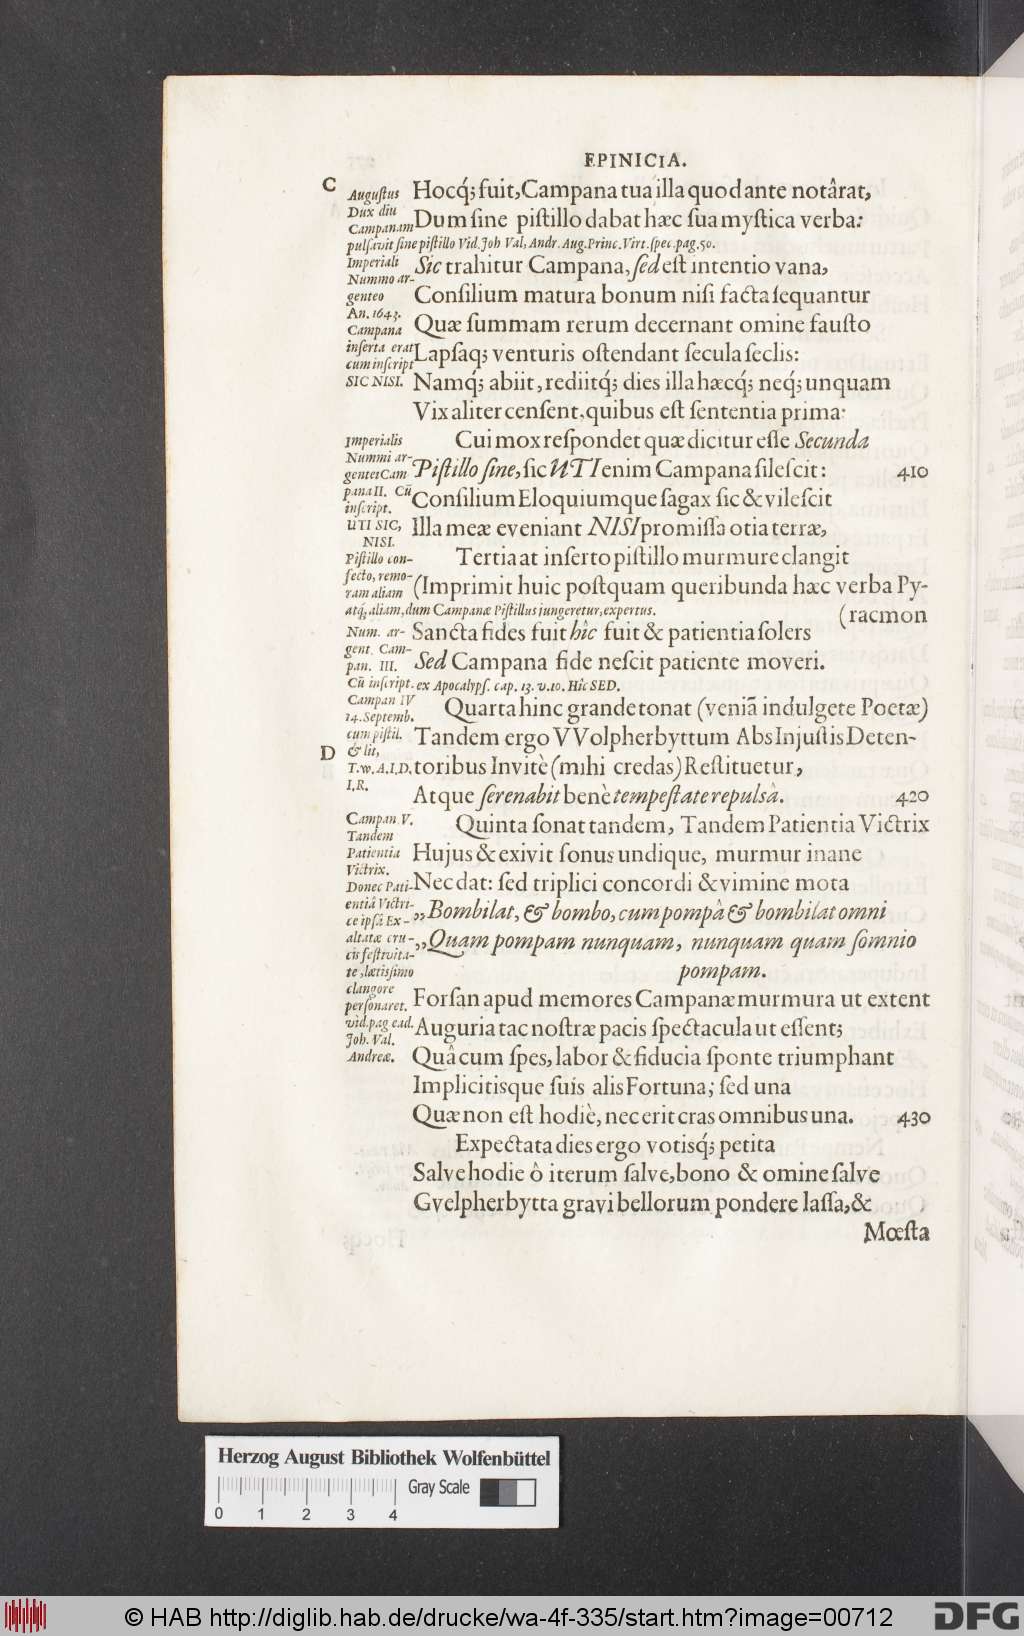 EPINICIA.
C
Auguſtus
Dux diu
Campanam
pulſavit ſine piſtillo Vid. Joh Val, Andr. Aug. Princ. Virt. ſpec. pag. 50.
Hocq́; fuit, Campana tua illa quod ante notârat,
Dum ſine piſtillo dabat hæc ſua myſtica verba:
Imperiali
Nummo ar-
genteo
An. 1643.
Campana
inſerta erat
cum inſcript
SIC NISI.
Sic trahitur Campana, ſed eſt intentio vana,
Conſilium matura bonum niſi facta ſequantur
Quæ ſummam rerum decernant omine fauſto
Lapſaq; venturis oſtendant ſecula ſeclis:
Namq́; abiit, rediitq́; dies illa hæcq́; neq́; unquam
Vix aliter cenſent, quibus eſt ſententia prima:
Imperialis
Nummi ar-
gentei Cam
pana II. Cũ
inſcript.
UTI SIC,
NISI.
Cui mox reſpondet quæ dicitur eſſe Secunda
Piſtillo ſine, ſic UTI enim Campana ſileſcit: 410
Conſilium Eloquiumque ſagax ſic & vileſcit
Illa meæ eveniant NISI promiſſa otia terræ,
Piſtillo con-
fecto, remo-
ram aliam
atq́, aliam, dum Campanæ Piſtillus jungeretur, expertus.
Tertia at inſerto piſtillo murmure clangit
(Imprimit huic poſtquam queribunda hæc verba Py-
(racmon
Num. ar-
gent. Cam-
pan. III.
Cũ inſcript. ex Apocalypſ. cap. 13. v. 10. Hîc SED.
Sancta fides fuit hîc fuit & patientia ſolers
Sed Campana fide neſcit patiente moveri.
Campan IV
14. Septemb.
cum piſtil.
& lit,
T. w. A. I. D.
I. R.
D
Quarta hinc grande tonat (veniã indulgete Poetæ)
Tandem ergo VVolpherbyttum Abs Injuſtis Deten-
toribus Invitè (mihi credas) Reſtituetur,
Atque ſerenabit benè tempeſtate repulsâ. 420
Campan V.
Tandem
Patientia
Victrix.
Donec Pati-
entiâ Victri-
ce ipſâ Ex-
altatæ cru-
cis feſtivita-
te, lætiſſimo
clangore
perſonaret.
vid. pag ead.
Joh. Val.
Andreæ.
Quinta ſonat tandem, Tandem Patientia Victrix
Hujus & exivit ſonus undique, murmur inane
Nec dat: ſed triplici concordi & vimine mota
„Bombilat, & bombo, cum pompâ & bombilat omni
„Quam pompam nunquam, nunquam quam ſomnio
pompam.
Forſan apud memores Campanæ murmura ut extent
Auguria tac noſtræ pacis ſpectacula ut eſſent;
Quâ cum ſpes, labor & fiducia ſponte triumphant
Implicitisque ſuis alis Fortuna; ſed una
Quæ non eſt hodiè, nec erit cras omnibus una. 430
Expectata dies ergo votisq́; petita
Salve hodie ô iterum ſalve, bono & omine ſalve
Gvelpherbytta gravi bellorum pondere laſſa, &
Mœſta
Herzog August Bibliothek Wolfenbüttel
Gray Scale
0 1 2 3 4
© HAB http://diglib.hab.de/drucke/wa-4f-335/start.htm?image=00712
DFG